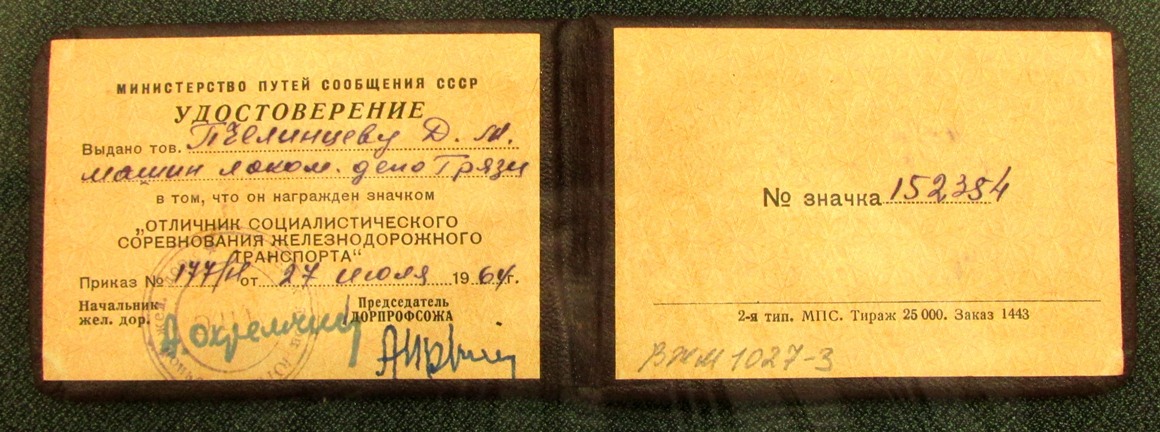 МИНИСТЕРСТВО ПУТЕЙ СООБЩЕНИЯ СССР
УДОСТОВЕРЕНИЕ
Выдано тов. Пчелинцеву Д. М.
машин локом. депо Грязи
в том, что он награжден значком
„ОТЛИЧНИК СОЦИАЛИСТИЧЕСКОГО
СОРЕВНОВАНИЯ ЖЕЛЕЗНОДОРОЖНОГО
ТРАНСПОРТА“
Приказ № 177/Н от 27 июля 1964 г.
Начальник
жел. дор.
Председатель
ДОРПРОФСОЖА
№ значка 152384
2-я тип. МПС. Тираж 25 000. Заказ 1443
ВЖМ 1027-3